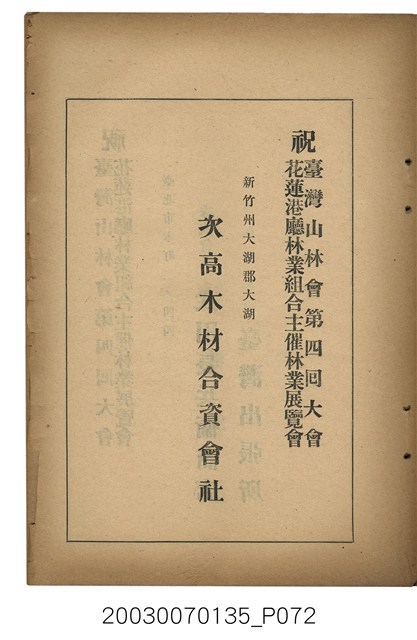 祝
臺灣山林會第四回大會
花蓮港廳林業組合主催林業展覽會
新竹州大湖郡大湖
次高木材合資會社
20030070135_P072